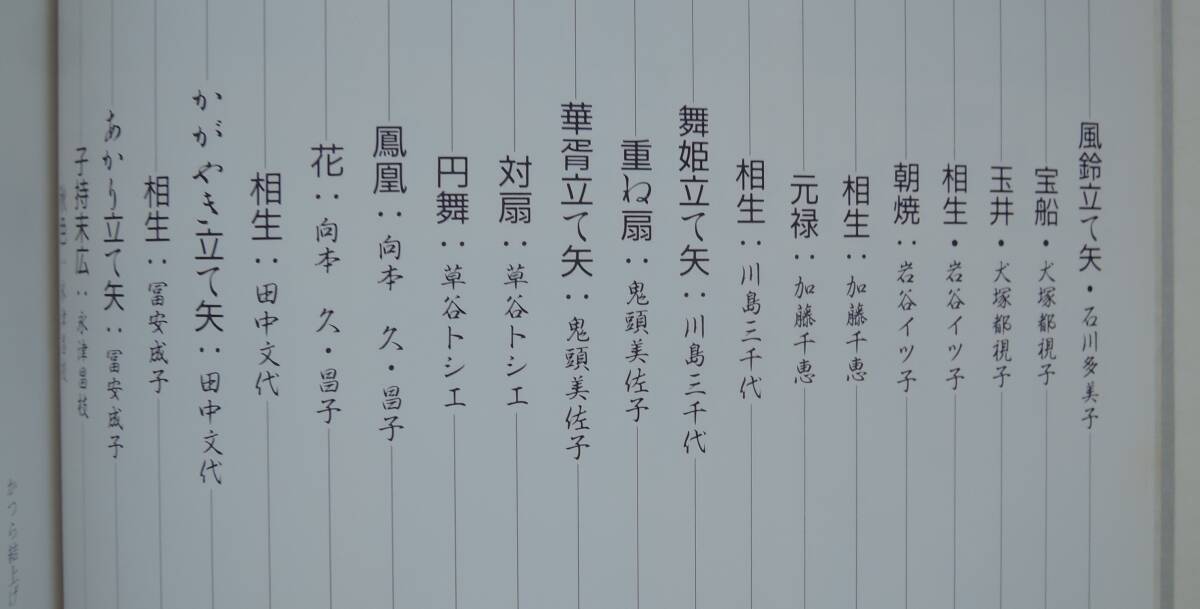 風鈴立て矢・石川多美子
宝船・犬塚都視子
玉井・犬塚都視子
相生・岩谷イツ子
朝焼：岩谷イツ子
相生：加藤千恵
元禄：加藤千恵
相生：川島三千代
舞姫立て矢：川島三千代
重ね扇：鬼頭美佐子
華胥立て矢：鬼頭美佐子
対扇：草谷トシエ
円舞：草谷トシエ
鳳凰：向本　久・昌子
花：向本　久・昌子
相生：田中文代
かがやき立て矢：田中文代
相生：冨安成子
あかり立て矢：冨安成子
子持末広：永津昌枝
かつら結上げ